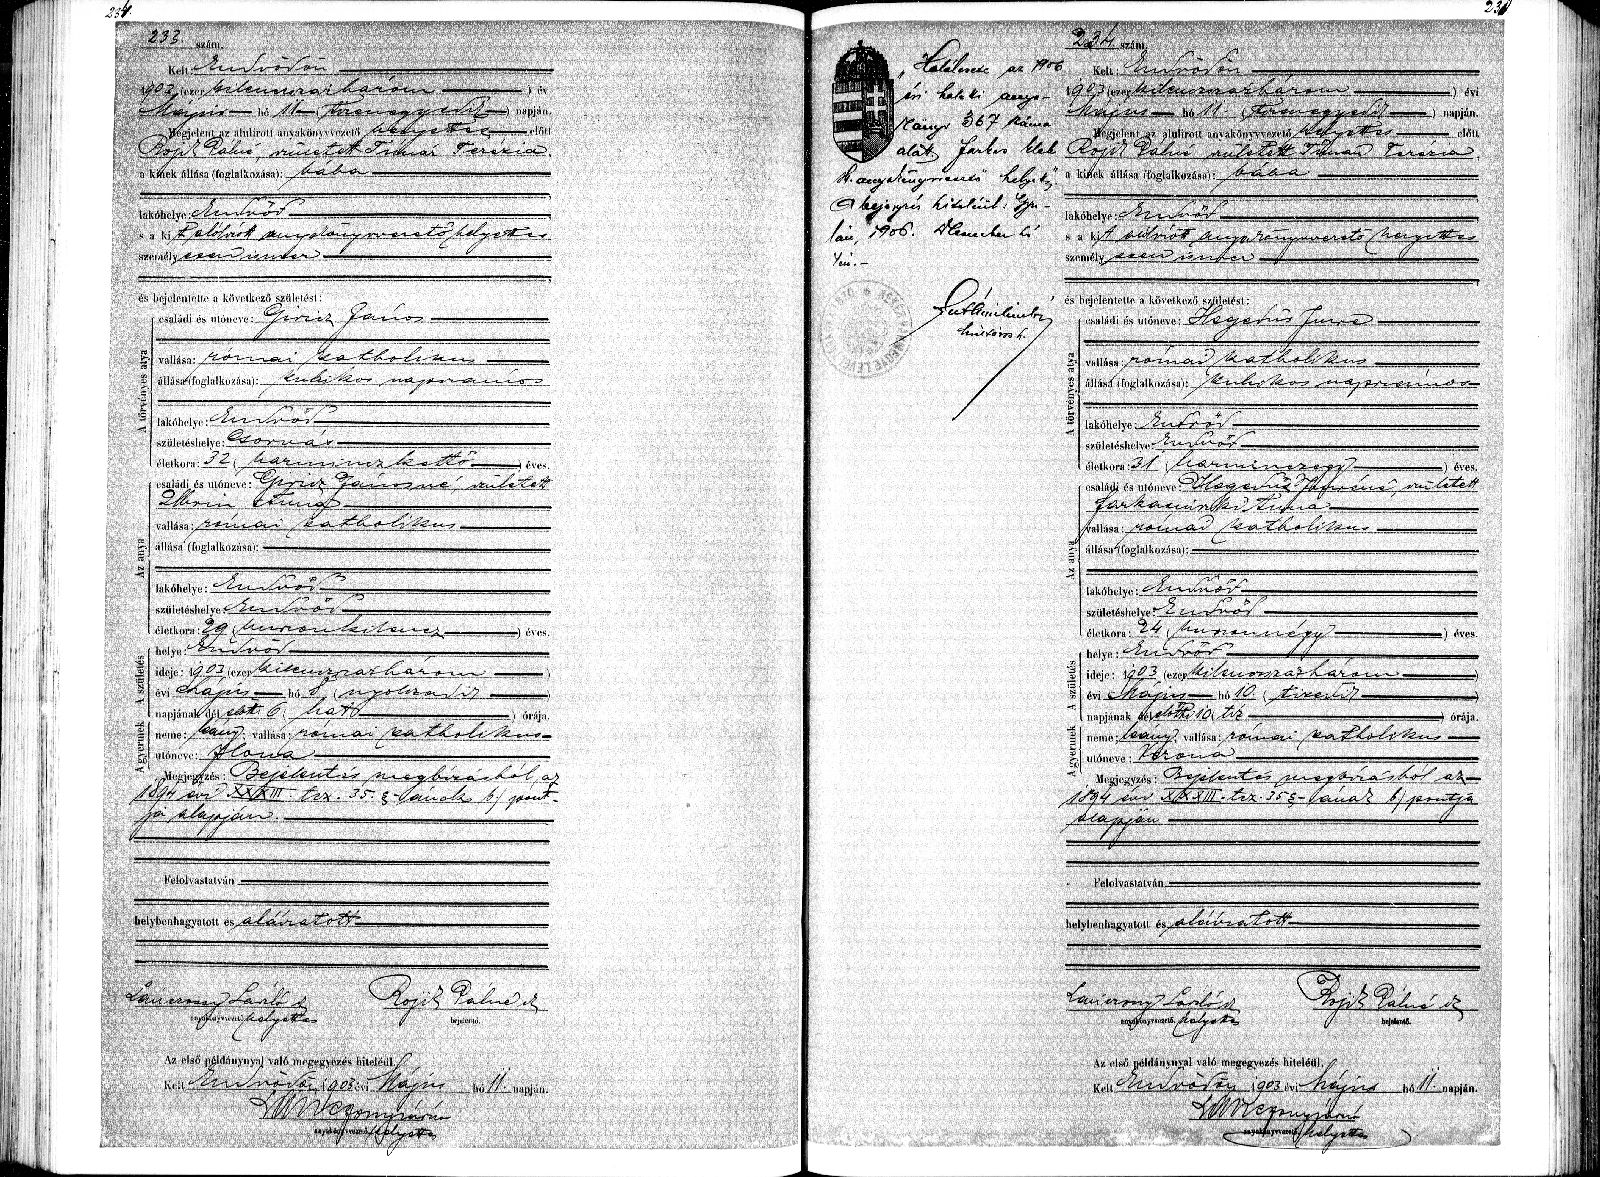 233 szám.
Kelt: Endrődön
1903 (ezer kilenczszázhárom) év
Május hó 11 (tizenegyedik) napján.
Megjelent az alulirott anyakönyvvezető helyettes előtt
Rojik Pálné, született Timár Terézia,
a kinek állása (foglalkozása): bába
lakóhelye: Endrőd
s a kit alólirott anyakönyvvezető helyettes
személyesen ismer
és bejelentette a következő születést:
A törvényes atya
családi és utóneve: Giricz János
vallása: római katholikus
állása (foglalkozása): kubikos napszámos
lakóhelye: Endrőd
születéshelye: Csorvás
életkora: 32 (harminczkettő) éves.
Az anya
családi és utóneve: Giricz Jánosné, született
vallása: római katholikus
állása (foglalkozása):
lakóhelye: Endrőd
születéshelye: Endrőd
életkora: 29 (huszonkilencz) éves.
A születés
helye: Endrőd
ideje: 1903 (ezer kilenczszázhárom)
évi Május hó 8 (nyolczadik)
napjának dél 6 (hat) órája.
A gyermek
neme: leány; vallása: római katholikus
utóneve: Ilona
Megjegyzés: Bejelentés megbízásból az
1894 évi XXXIII. tcz. 35. §-ának b) pont-
ja alapján.
Felolvastatván
helybenhagyatott és aláíratott
László
anyakönyvvezető helyettes
Rojik Pálné
bejelentő.
Az első példánynyal való megegyezés hiteléül.
Kelt Endrődön 1903 évi Május hó 11. napján.
anyakönyvvezető helyettes
"Halálesete az 1906
évi halotti anya-
könyv 367 száma
alatt, Farkas
h. anyakönyvvezető helyett,
A bejegyzés hiteléül: Gyu-
lán, 1906. December hó
234 szám.
Kelt: Endrődön
1903 (ezer kilenczszázhárom) évi
Május hó 11 (tizenegyedik) napján.
Megjelent az alulirott anyakönyvvezető helyettes előtt
Rojik Pálné született Timár Terézia,
a kinek állása (foglalkozása): bába
lakóhelye: Endrőd
s a kit alólirott anyakönyvvezető helyettes
személyesen ismer
és bejelentette a következő születést:
A törvényes atya
családi és utóneve: Hegedüs Imre
vallása: római katholikus
állása (foglalkozása): kubikos napszámos
lakóhelye: Endrőd
születéshelye: Endrőd
életkora: 31 (harminczegy) éves.
Az anya
családi és utóneve: Hegedüs Imréné, született
Farkasinszki Anna
vallása: római katholikus
állása (foglalkozása):
lakóhelye: Endrőd
születéshelye: Endrőd
életkora: 24 (huszonnégy) éves.
A születés
helye: Endrőd
ideje: 1903 (ezer kilenczszázhárom)
évi Május hó 10. (tizedik)
napjának délelőtti 10 (tíz) órája.
A gyermek
neme: leány; vallása: római katholikus
utóneve: Verona
Megjegyzés: Bejelentés megbízásból az
1894 évi XXXIII. tcz. 35 §-ának b) pontja
alapján
Felolvastatván
helybenhagyatott és aláíratott
László
anyakönyvvezető helyettes
Rojik Pálné
bejelentő.
Az első példánynyal való megegyezés hiteléül.
Kelt Endrődön 1903 évi Május hó 11. napján.
anyakönyvvezető helyettes